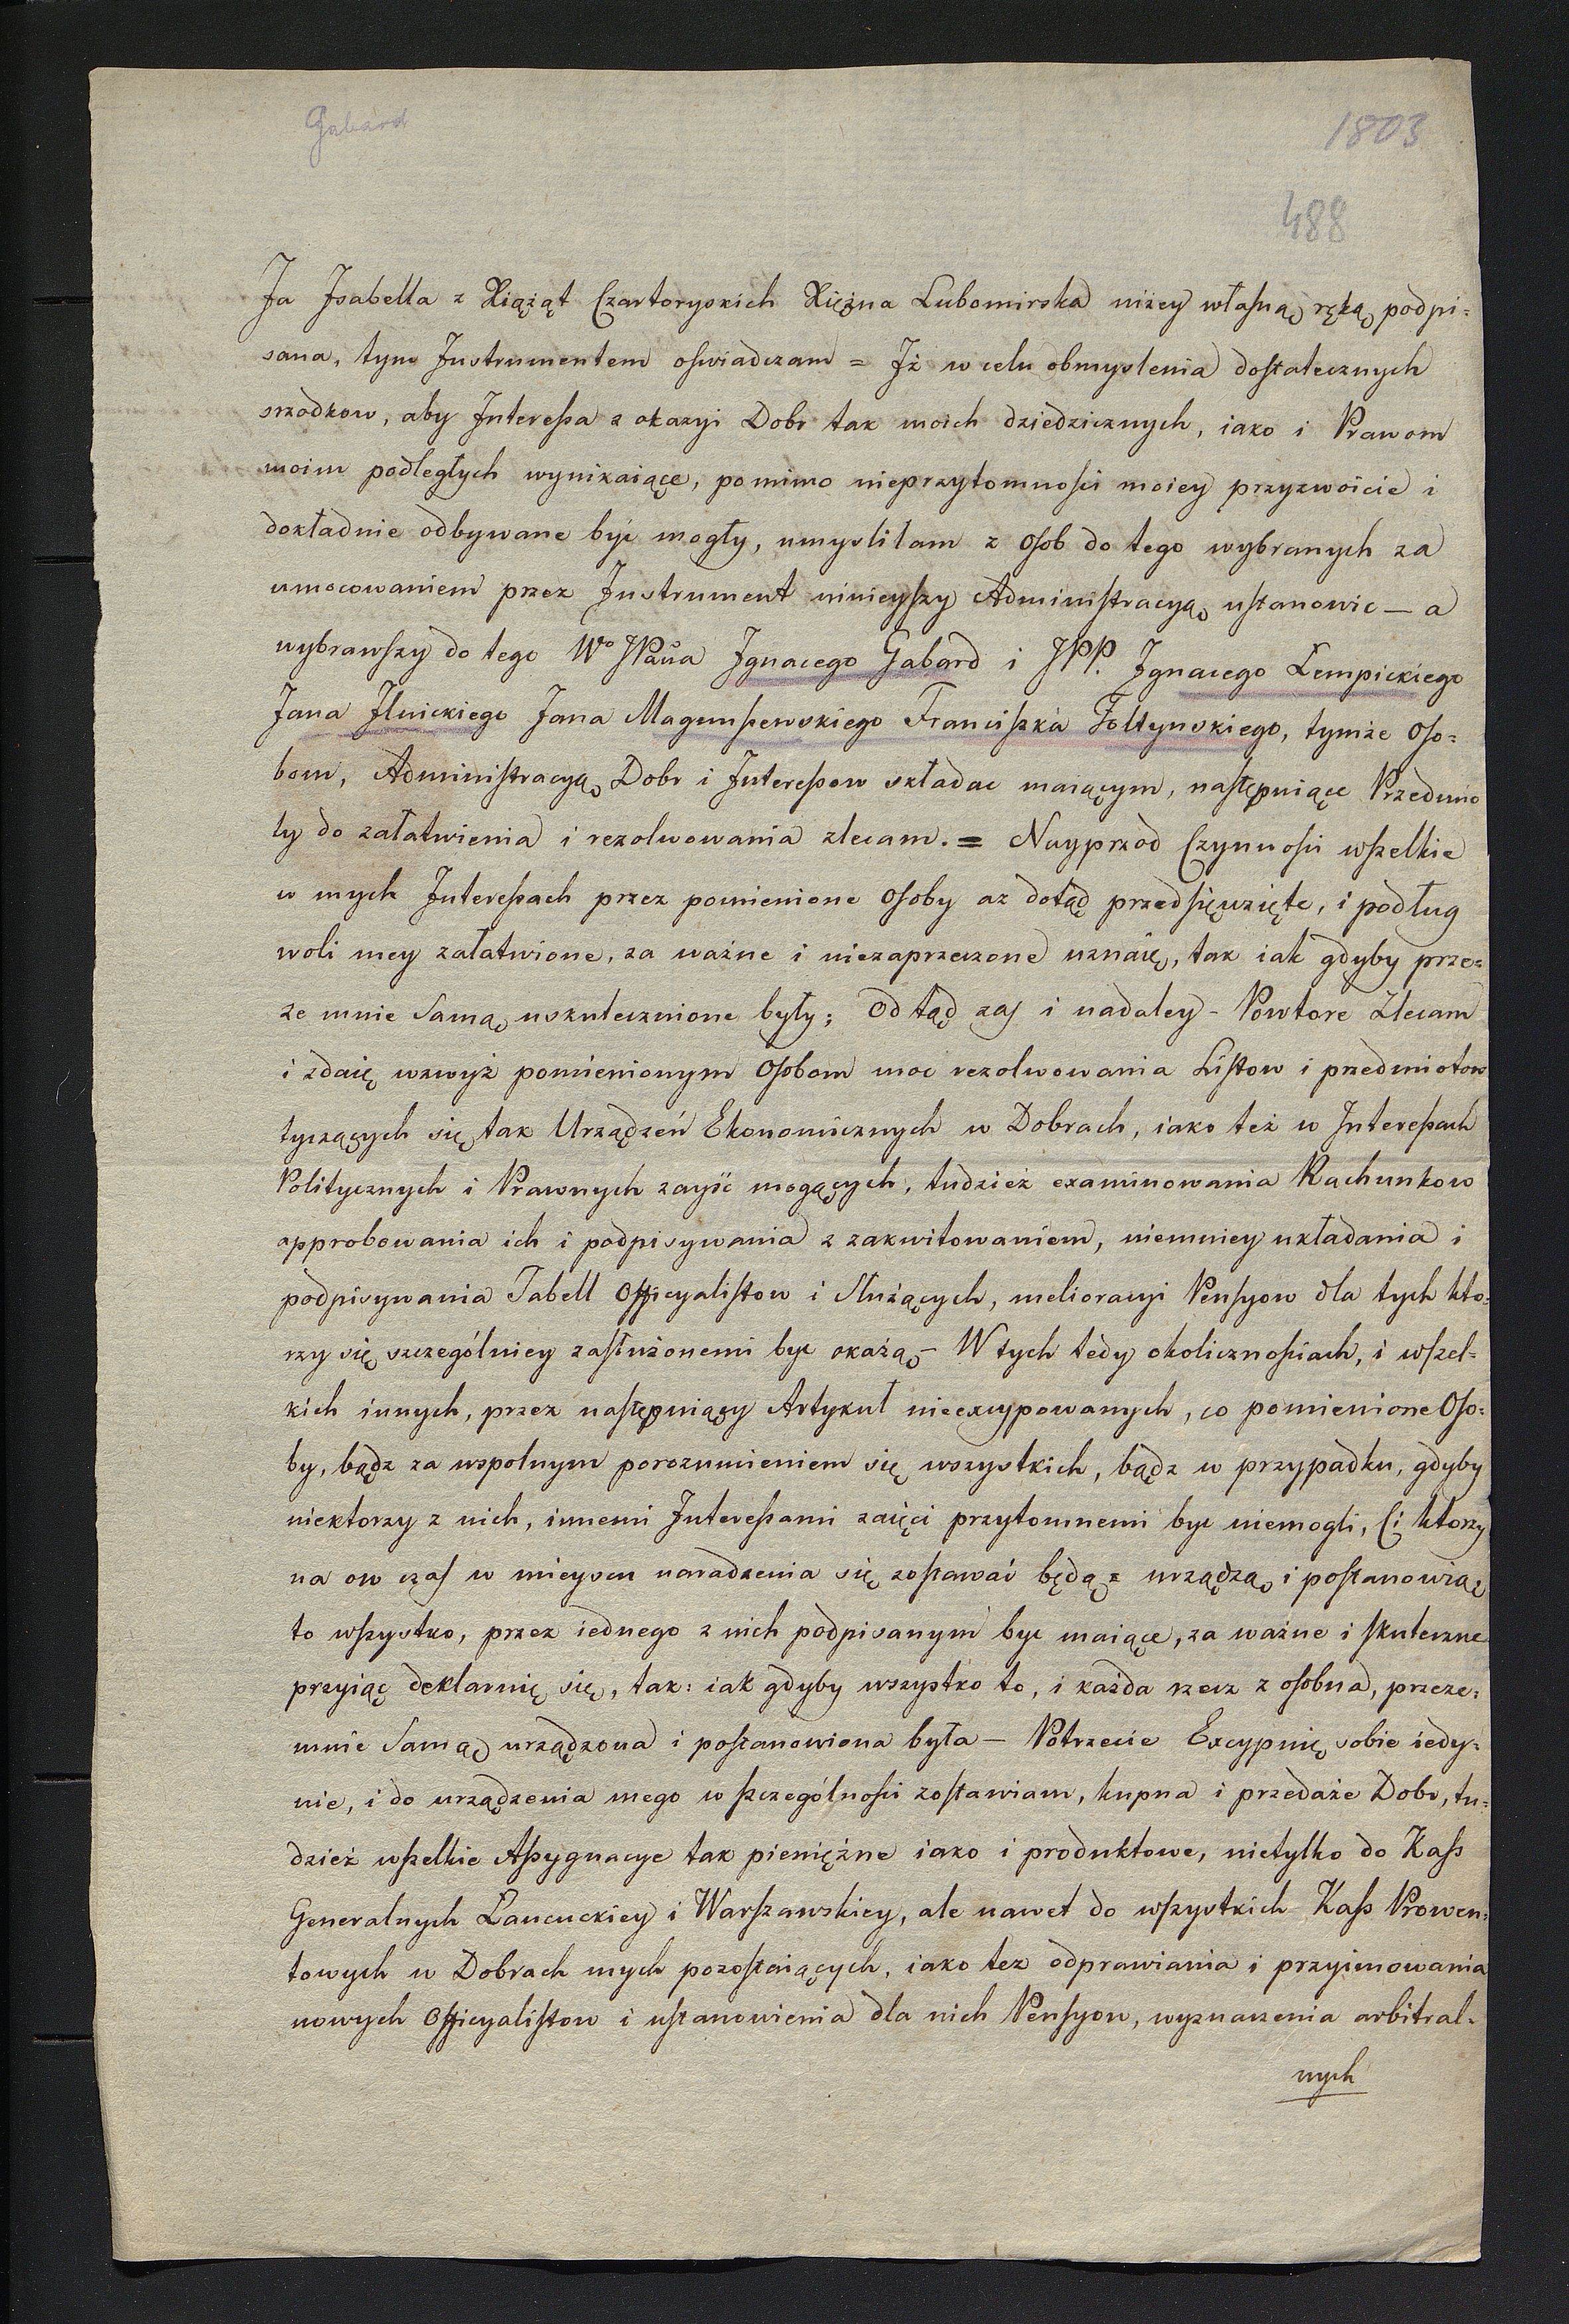 Gabard
1803
488
Ja Jsabella z Xiążąt Czartoryskich Xiężna Lubomirska niżey własną ręką podpi=
sana, tym Jnstrumentem oswiadczam = Jż w celu obmyslenia dostatecznych
srzodkow, aby Jnteressa z okazyi Dobr tak moich dziedzicznych, iako i Prawom
moim podległych wynikaiące, pomimo nieprzytomnosci moiey przyzwoicie i
dokładnie odbywane być mogły, umysliłam z Osob do tego wybranych za
umocowaniem przez Jnstrument ninieyszy Administracyą ustanowic — a
wybrawszy do tego Wo JPana Jgnacego Gabard i JPP. Jgnacego Lempickiego
Jana Jlnickiego Jana Magnuszewskiego Franciszka Foltynskiego, tymże Oso=
bom, Administracyą Dobr i Jnteressow składac maiącym, następuiące Przedmio
ty do załatwienia i rezolwowania zlecam. = Nayprzod Czynnosci wszelkie
w mych Jnteressach przez pomienione Osoby az dotąd przedsięwzięte, i podług
woli mey załatwione, za ważne i niezaprzeczone uznaię, tak iak gdyby prze=
ze mnie Samą uskutecznione były; Od tąd zas i nadaley - Powtore Zlecam
i zdaię wzwyż pomienionym Osobom moc rezolwowania Listow i przedmiotow
tyczących się tak Urządzeń Ekonomicznych w Dobrach, iako też w Jnteressach
Politycznych i Prawnych zayść mogących, tudzież examinowania Rachunkow
approbowania ich i podpisywania z zakwitowaniem, niemniey układania i
podpisywania Tabell Officyalistow i Służących, melioracyi Pensyow dla tych kto=
rzy się szczególniey zasłużonemi byc okażą - W tych tedy okolicznosciach, i wszel=
kich innych, przez następuiący Artykuł nieexcypowanych, co pomienione Oso=
by, bądz za wspolnym porozumieniem się wszystkich, bądz w przypadku, gdyby
niektorzy z nich, innemi Jnteressami zaięci przytomnemi byc niemogli, Ci ktorzy
na ow czas w mieyscu naradzenia się zostawać będą = urządzą i postanowią
to wszystko, przez iednego z nich podpisanym byc maiące, za ważne i skuteczne
przyiąc deklaruię się, tak: iak gdyby wszystko to, i każda rzecz z osobna, przeze=
mnie Samą urządzona i postanowiona była — Potrzecie Excypuię sobie iedy=
nie, i do urządzenia mego w szczególnosci zostawiam, kupna i przedaże Dobr, tu=
dzież wszelkie Assygnacye tak pieniężne iako i produktowe, nietylko do Kass
Generalnych Łancuckiey i Warszawskiey, ale nawet do wszystkich Kass Prowen=
towych w Dobrach mych pozostaiących, iako tez odprawiania i przyimowania
nowych Officyalistow i ustanowienia dla nich Pensyow, wyznaczenia arbitral=
nych